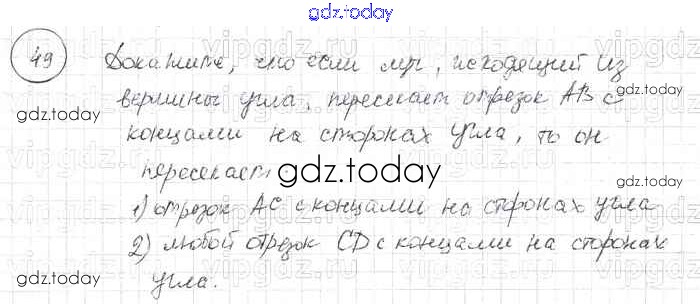 gdz.today
49 Докажите, что если луч, исходящий из
вершины угла, пересекает отрезок AB с
gdz.today
концами на сторонах угла, то он
пересекает:
gdz.today
gdz.today
1) отрезок AC с концами на сторонах угла
2) любой отрезок CD с концами на сторонах
gdz.today
угла.
gdz.today